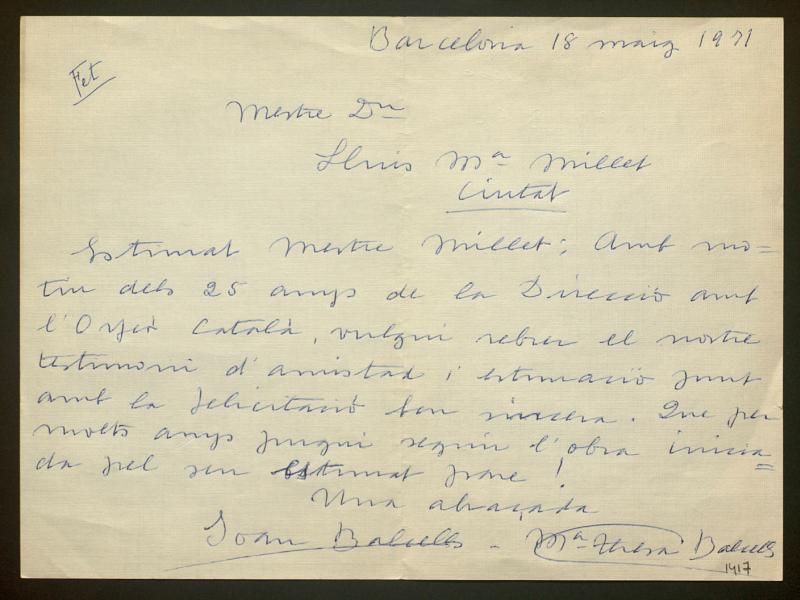 Barcelona 18 maig 1971
Fet
Mestre Dn
Lluis Mª Millet
Ciutat
Estimat Mestre Millet: Amb mo=
tiu dels 25 anys de la Direcció amb
l'Orfeò Català, vulgui rebrer el nostre
testimoni d'amistad i estimació junt
amb la felicitació ben sincera. Que per
molts anys pugui seguir l'obra inicia=
da pel seu estimat pare!
Una abraçada
Joan Balcells - Mª Teresa Balcells
1417